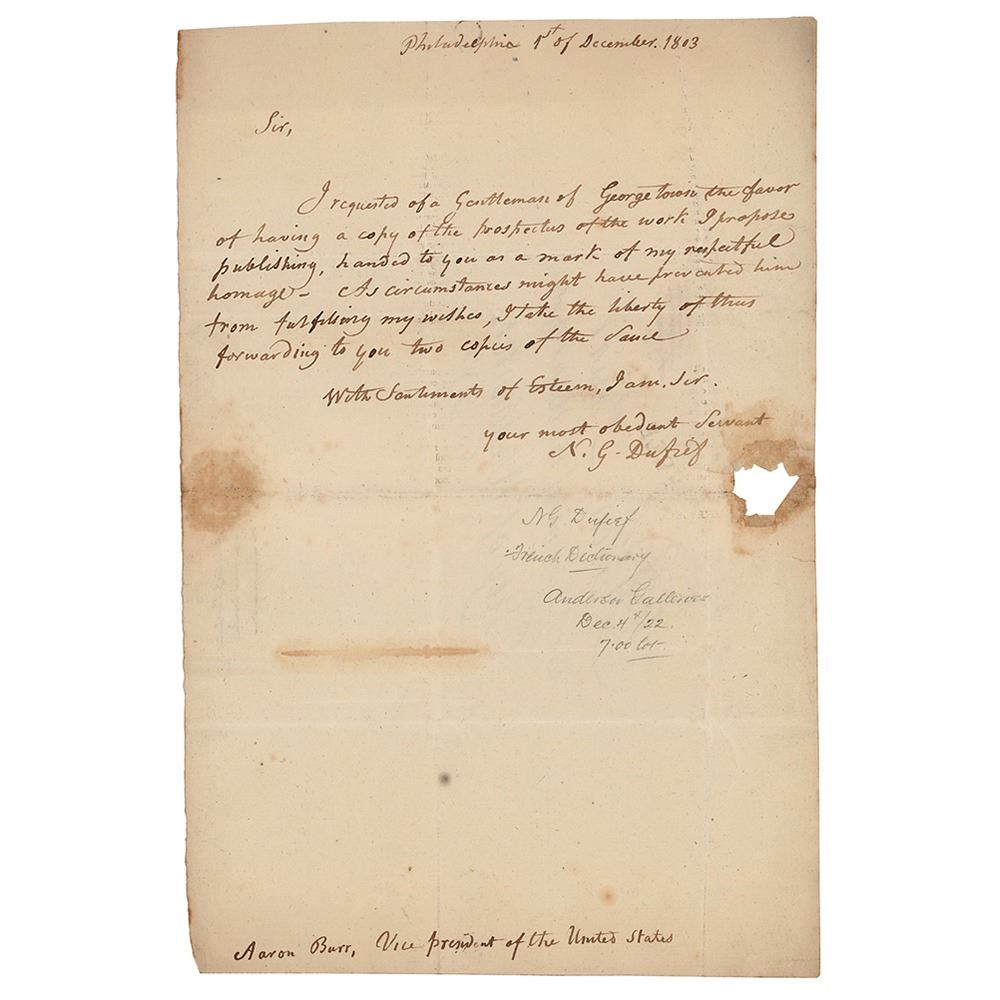 Philadelphia 1st of December. 1803
Sir,
I requested of a Gentleman of Georgetown the favor
of having a copy of the prospectus of the work I propose
publishing, handed to you as a mark of my respectful
homage - As circumstances might have prevented him
from fulfilling my wishes, I take the liberty of thus
forwarding to you two copies of the Same
With Sentiments of Esteem, I am, Sir.
your most obedient Servant
N. G. Dufief
NG Dufief
French Dictionary
Anderson Galleries
Dec. 4th/22.
7.00 lot.
Aaron Burr, Vice president of the United States